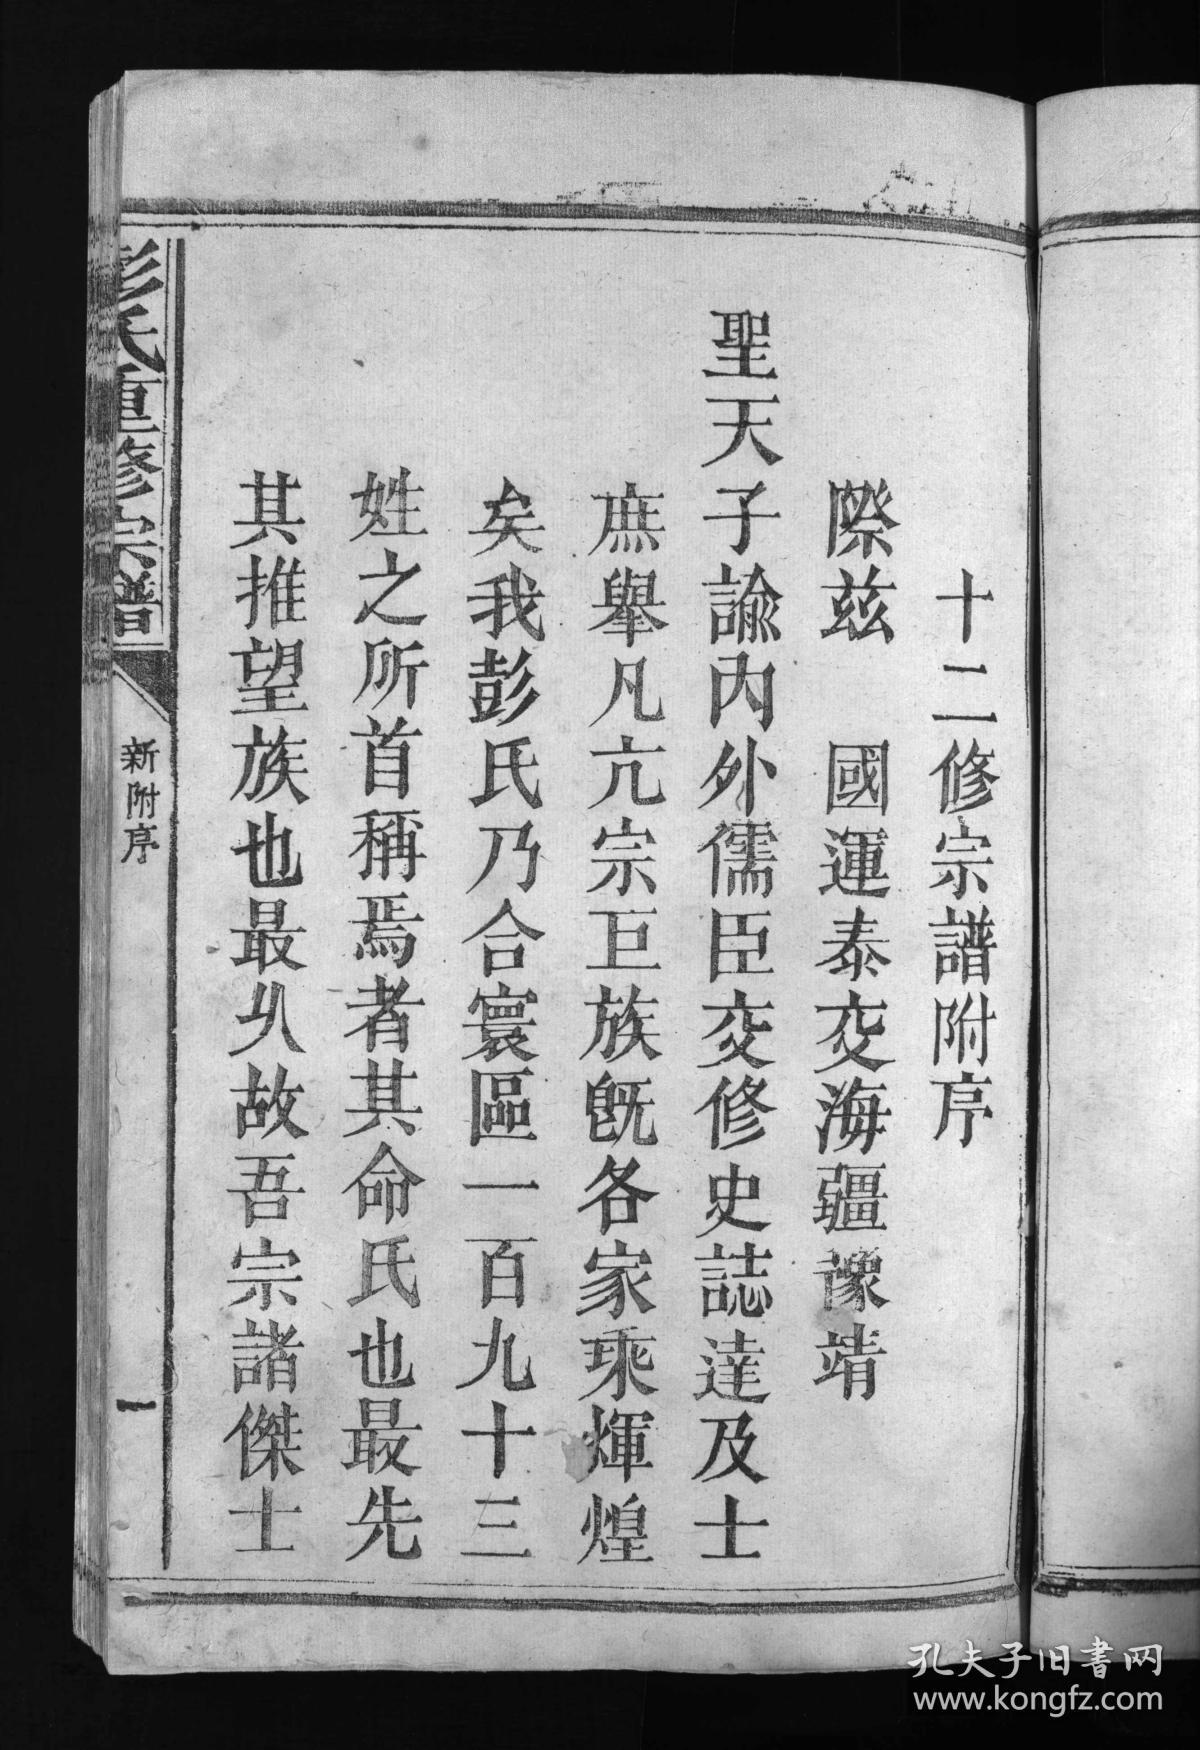 十二修宗譜附序
際玆　國運泰交海疆豫靖
聖天子諭內外儒臣交修史誌達及士
庶舉凡亢宗巨族旣各家乘煇煌
矣我彭氏乃合寰區一百九十三
姓之所首稱焉者其命氏也最先
其推望族也最乆故吾宗諸傑士
彭氏重修宗譜
新附序
一
孔夫子旧書网
www.kongfz.com